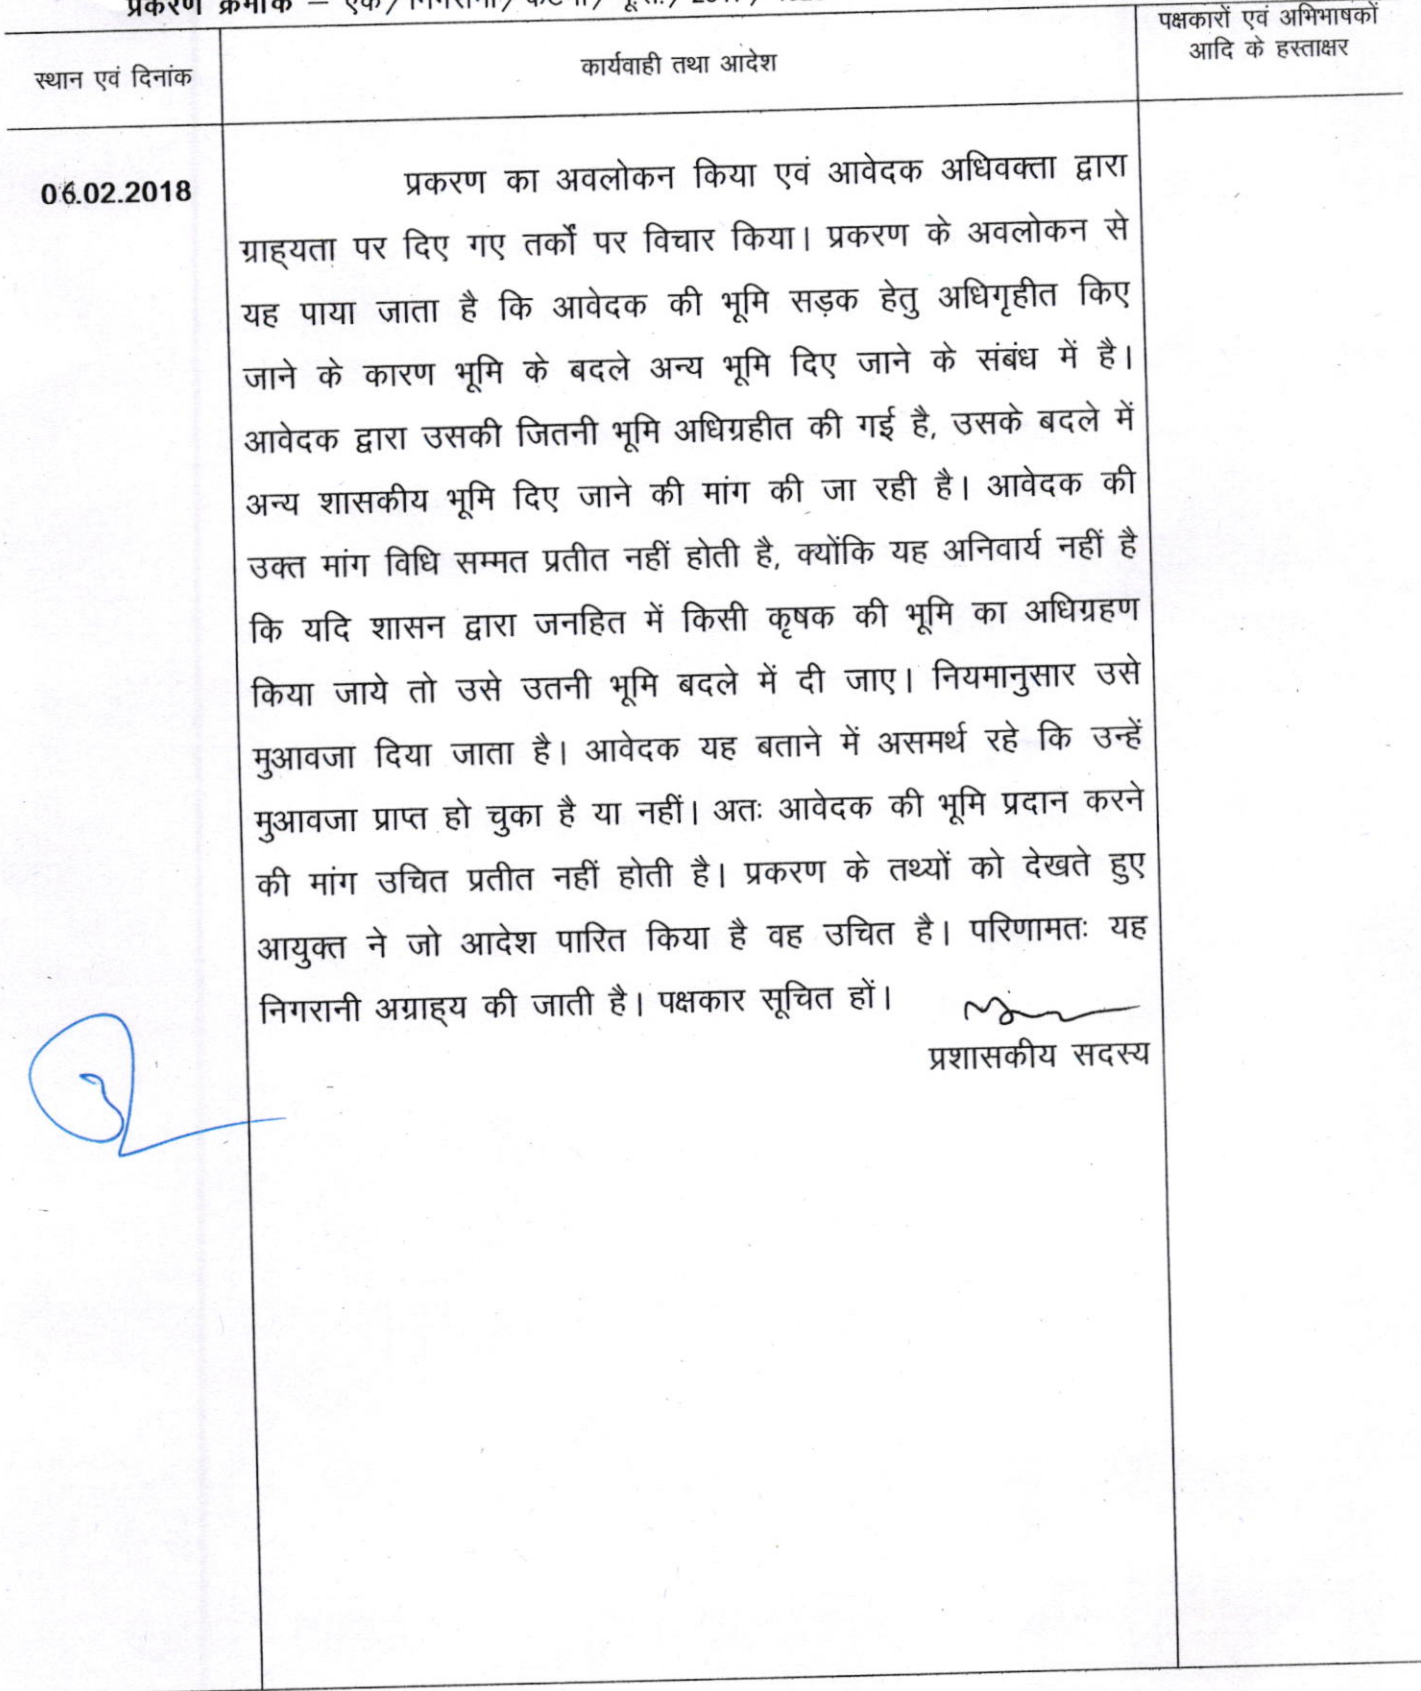 प्रकरण क्रमांक –
पक्षकारों एवं अभिभाषकों
आदि के हस्ताक्षर
स्थान एवं दिनांक
कार्यवाही तथा आदेश
06.02.2018
प्रकरण का अवलोकन किया एवं आवेदक अधिवक्ता द्वारा
ग्राह्यता पर दिए गए तर्कों पर विचार किया। प्रकरण के अवलोकन से
यह पाया जाता है कि आवेदक की भूमि सड़क हेतु अधिगृहीत किए
जाने के कारण भूमि के बदले अन्य भूमि दिए जाने के संबंध में है।
आवेदक द्वारा उसकी जितनी भूमि अधिग्रहीत की गई है, उसके बदले में
अन्य शासकीय भूमि दिए जाने की मांग की जा रही है। आवेदक की
उक्त मांग विधि सम्मत प्रतीत नहीं होती है, क्योंकि यह अनिवार्य नहीं है
कि यदि शासन द्वारा जनहित में किसी कृषक की भूमि का अधिग्रहण
किया जाये तो उसे उतनी भूमि बदले में दी जाए। नियमानुसार उसे
मुआवजा दिया जाता है। आवेदक यह बताने में असमर्थ रहे कि उन्हें
मुआवजा प्राप्त हो चुका है या नहीं। अतः आवेदक की भूमि प्रदान करने
की मांग उचित प्रतीत नहीं होती है। प्रकरण के तथ्यों को देखते हुए
आयुक्त ने जो आदेश पारित किया है वह उचित है। परिणामतः यह
निगरानी अग्राह्य की जाती है। पक्षकार सूचित हों।
प्रशासकीय सदस्य